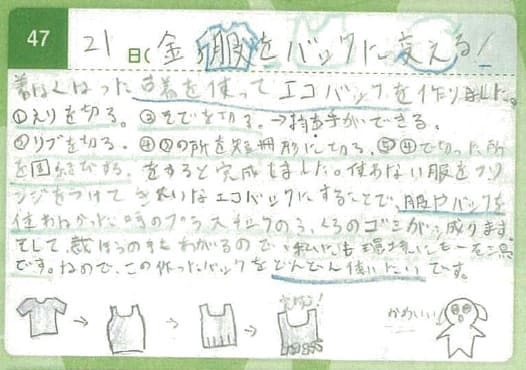 47
21日(金) 服をバックに変える!
着なくなった古着を使ってエコバックを作りました。
①えりを切る。③そでを切る。→持ち手ができる。
②リブを切る。④③の所を短冊形に切る。⑤④で切った所
を固結びする。をすると完成しました。使わない服をアレ
ンジをつけてきれいなエコバックにすることで、服やバックを
使わなかった時のプラスチックのふくろのゴミが減ります。
そして、裁ほうの手もわかるので、私にも環境にも一石二鳥
です。なので、この作ったバックをどんどん使いたいです。
完成!
かわいい!